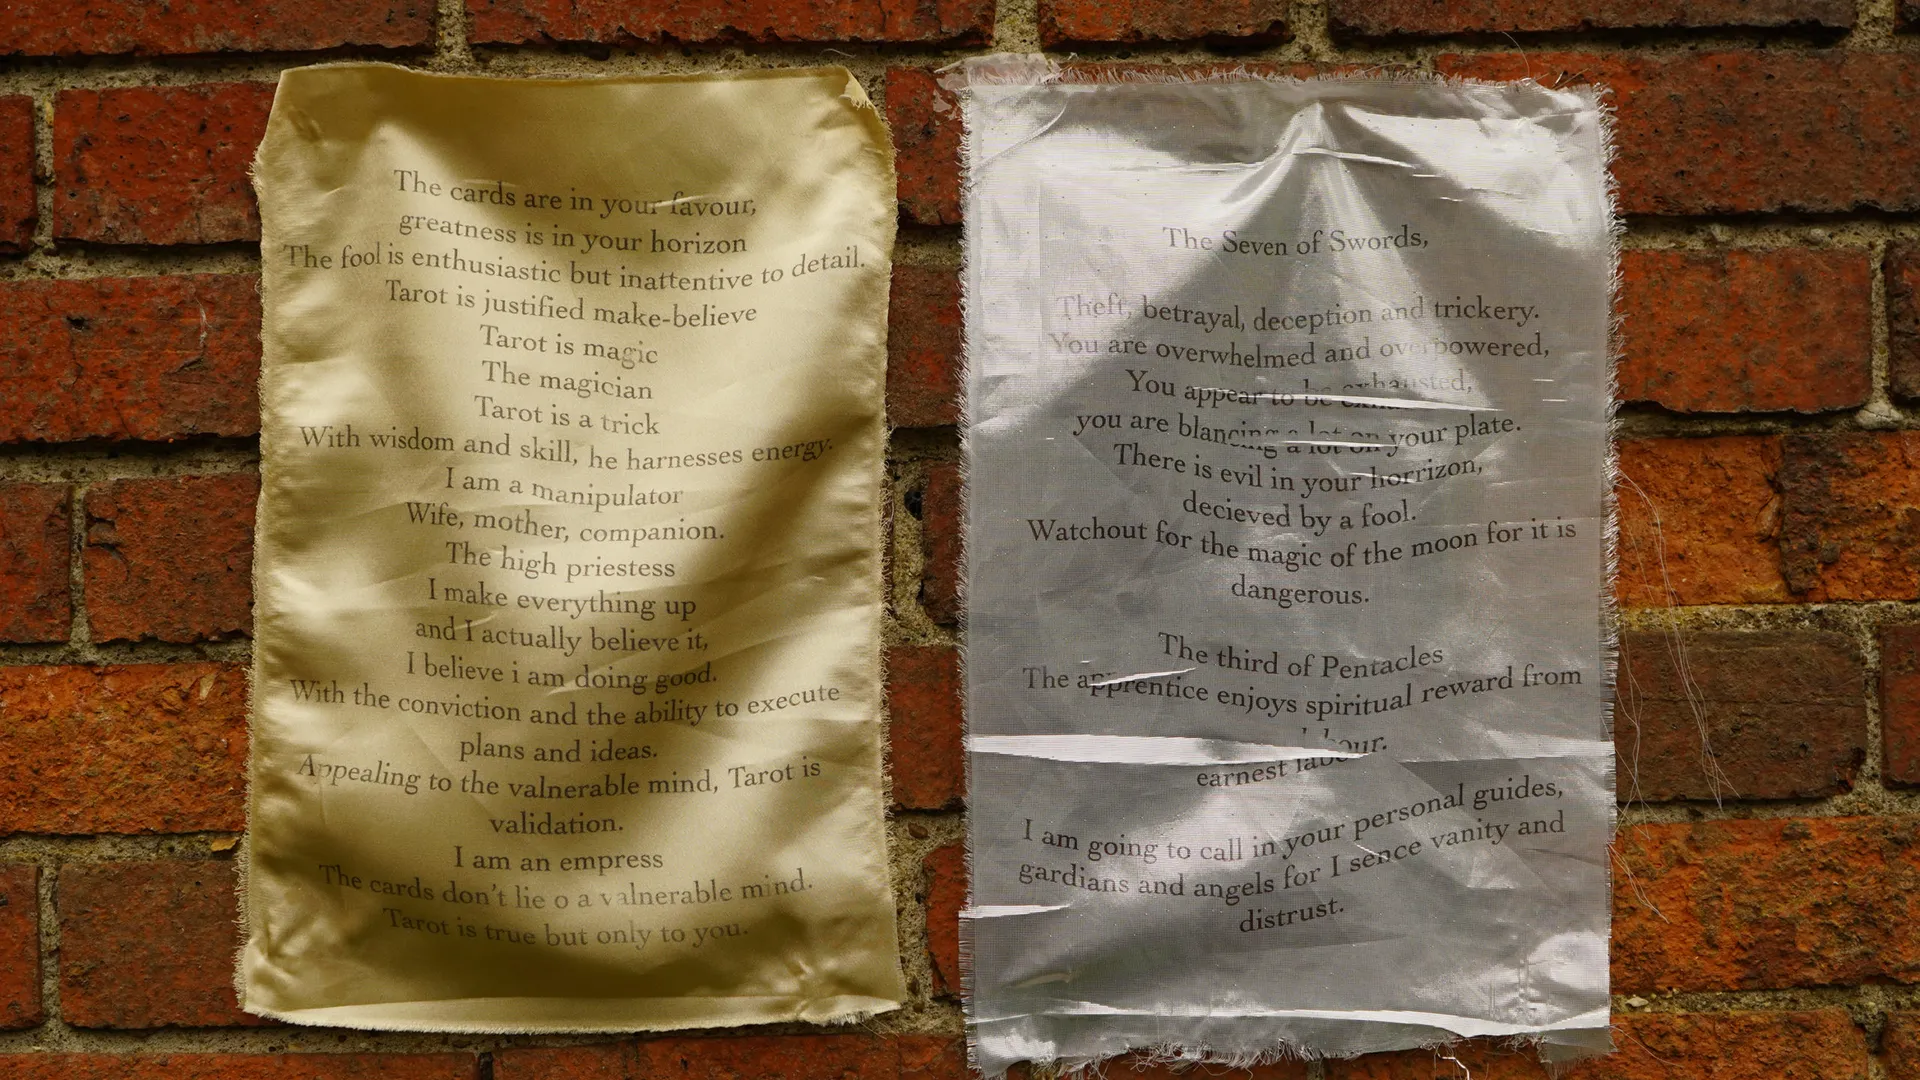 The cards are in your favour,
greatness is in your horizon
The fool is enthusiastic but inattentive to detail.
Tarot is justified make-believe
Tarot is magic
The magician
Tarot is a trick
With wisdom and skill, he harnesses energy.
I am a manipulator
Wife, mother, companion.
The high priestess
I make everything up
and I actually believe it,
I believe i am doing good.
With the conviction and the ability to execute
plans and ideas.
Appealing to the valnerable mind, Tarot is
validation.
I am an empress
The cards don't lie o a valnerable mind.
Tarot is true but only to you.
The Seven of Swords,
Theft, betrayal, deception and trickery.
You are overwhelmed and overpowered,
You appear to be exhausted,
you are blancing a lot on your plate.
There is evil in your horrizon,
decieved by a fool.
Watchout for the magic of the moon for it is
dangerous.
The third of Pentacles
The apprentice enjoys spiritual reward from
earnest labour.
I am going to call in your personal guides,
gardians and angels for I sence vanity and
distrust.